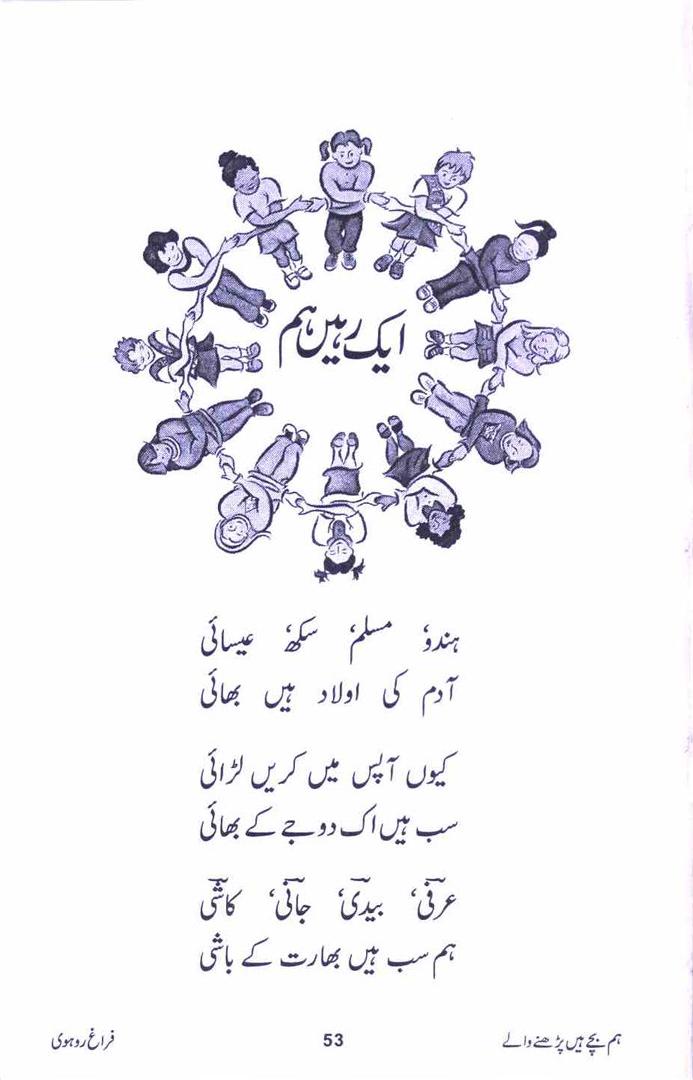 ایک رہیں ہم
ہندو، مسلم، سکھ، عیسائی
آدم کی اولاد ہیں بھائی
کیوں آپس میں کریں لڑائی
سب ہیں اک دوجے کے بھائی
عرفی، بیدی، جانی، کاشی
ہم سب ہیں بھارت کے باشی
ہم بچے ہیں پڑھنے والے 53 فراغ روہوی